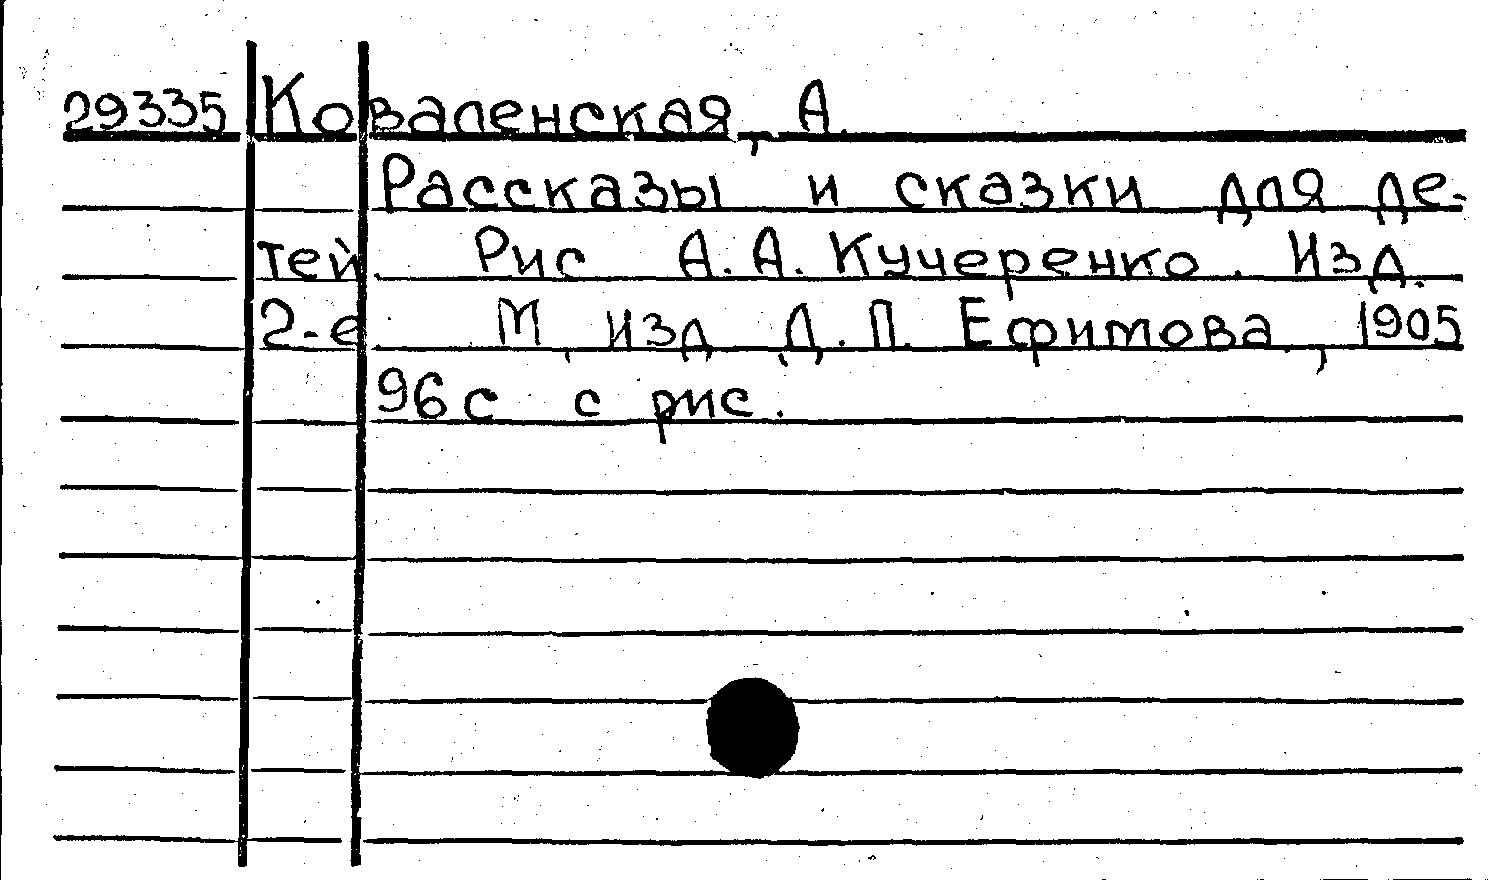 29335 Коваленская, А.
Рассказы и сказки для де-
тей. Рис А.А. Кучеренко. Изд.
2-е. М, изд Д.П. Ефимова, 1905
96 с с рис.